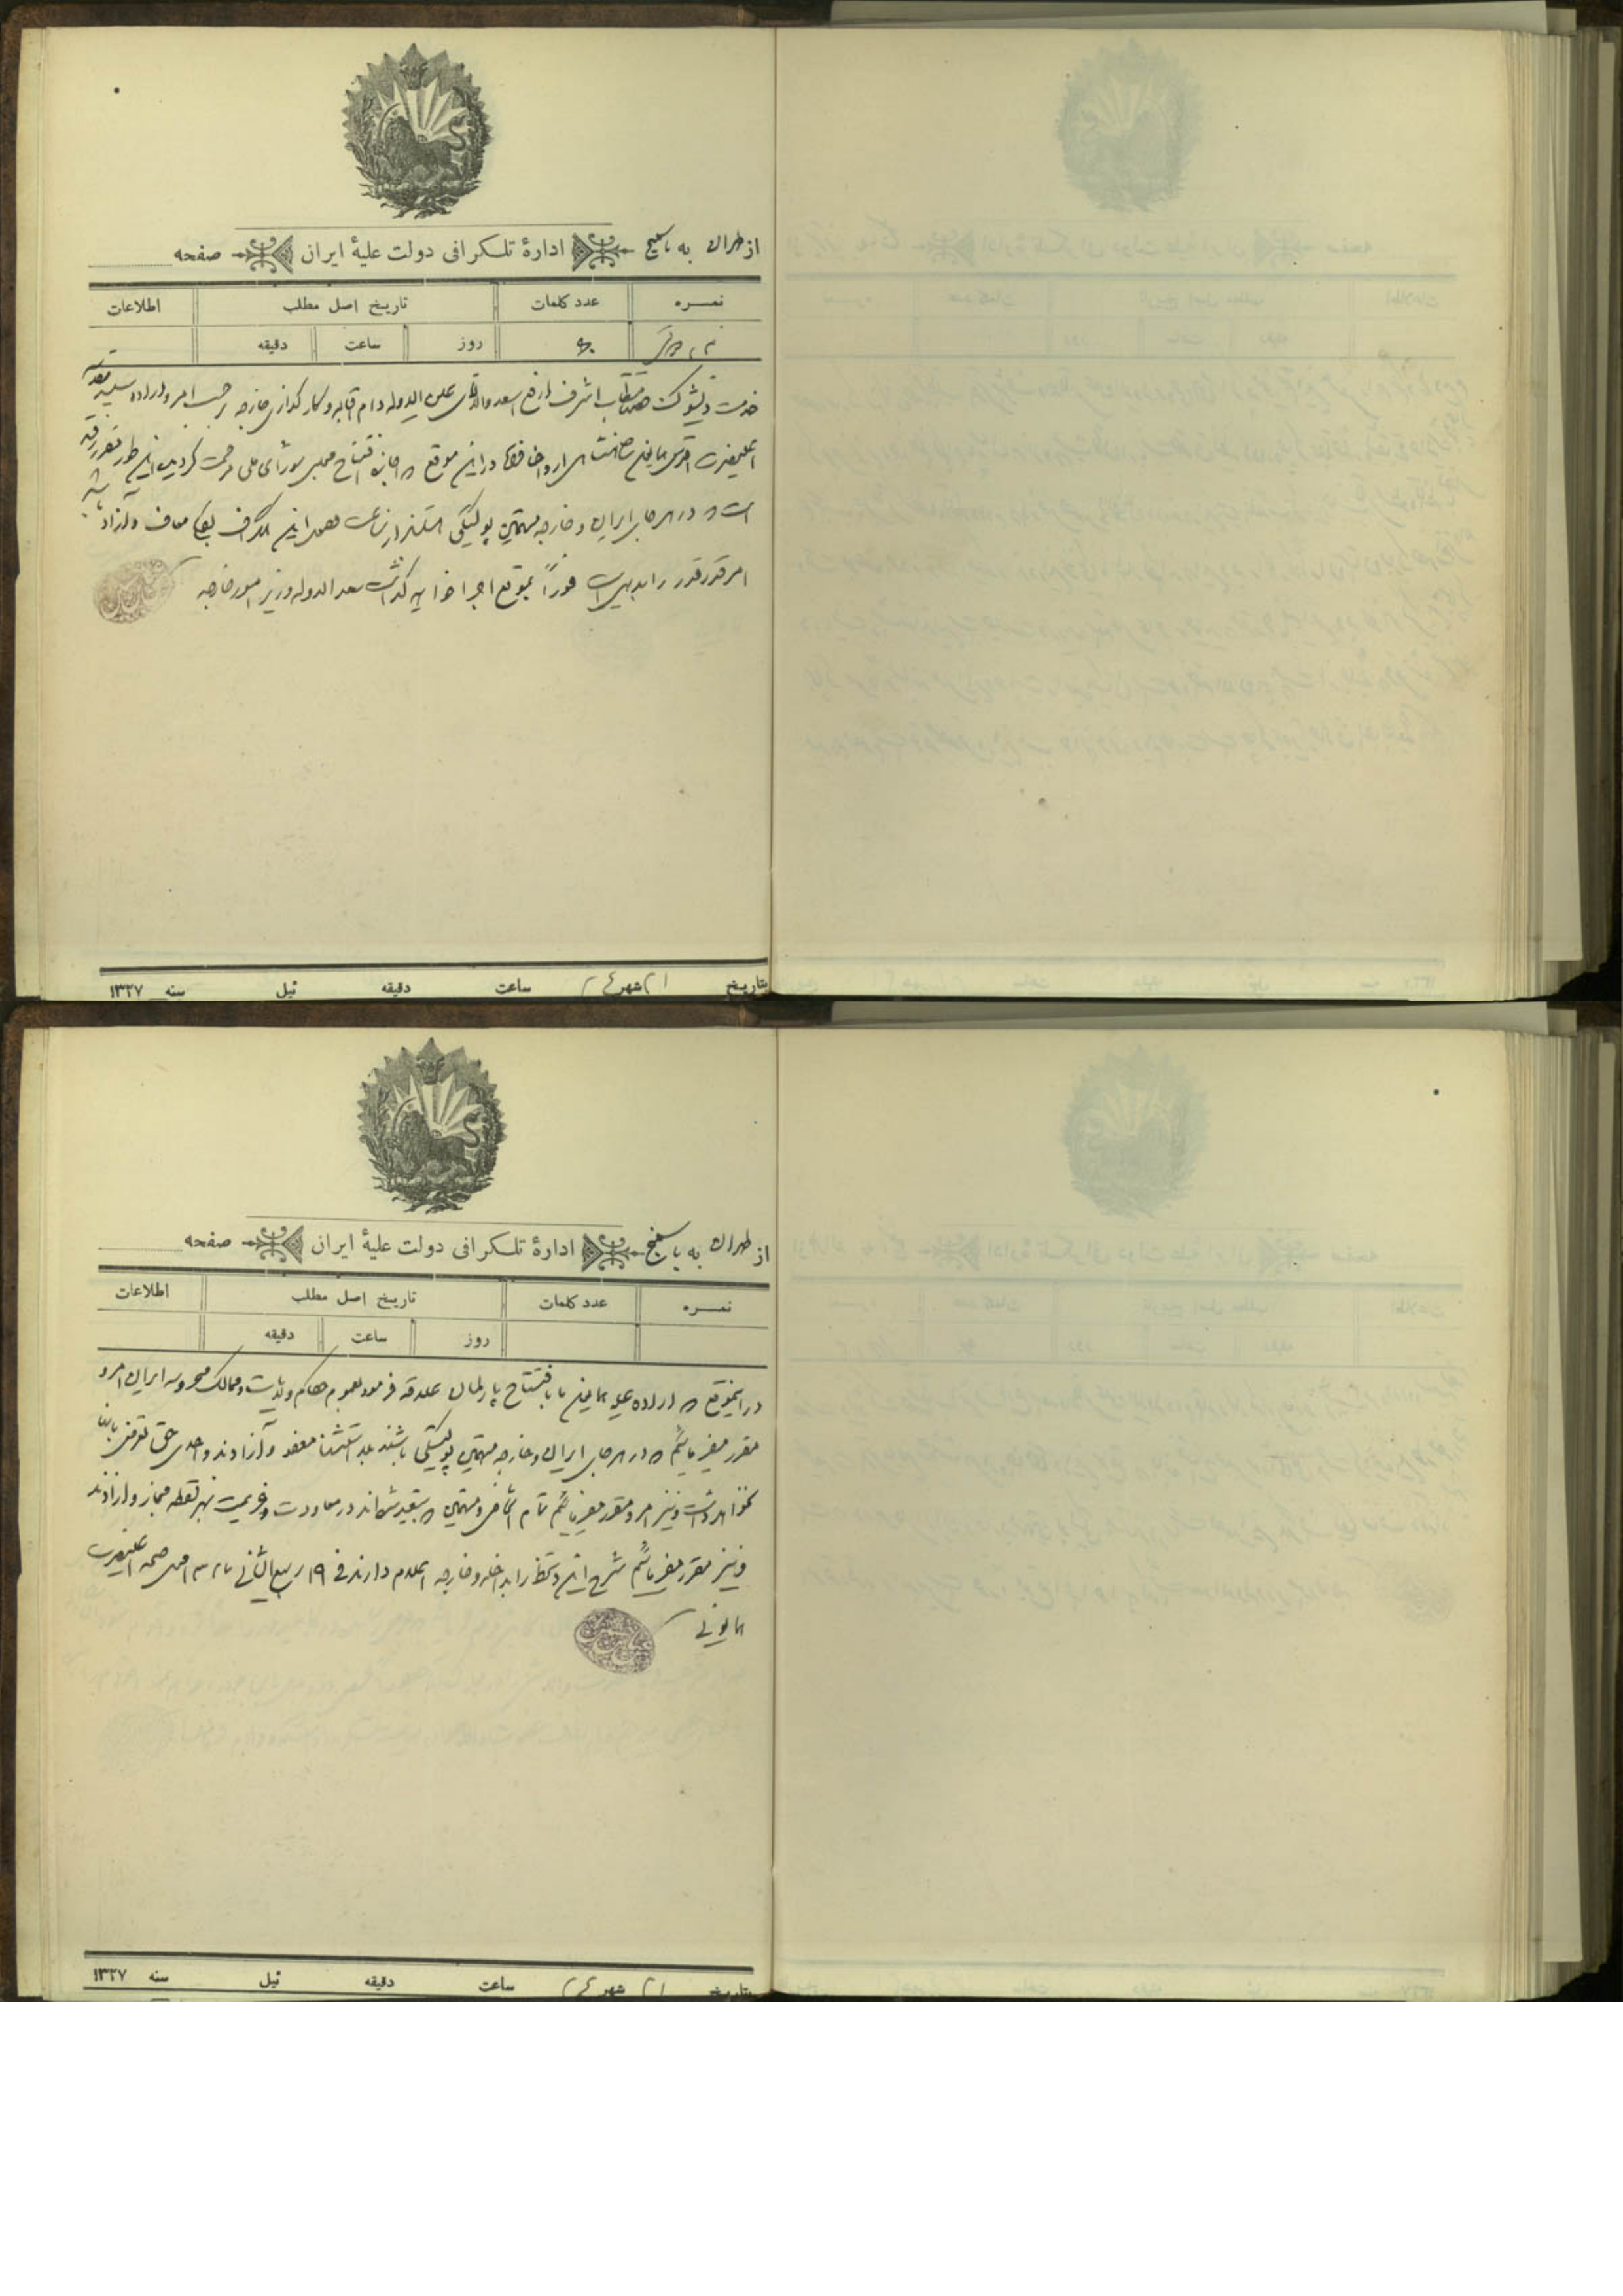 از طهران به باسمنج ادارهٔ تلگرافی دولت علیهٔ ایران صفحه
نمره عدد کلمات تاریخ اصل مطلب اطلاعات
روز ساعت دقیقه
خدمت ذیشوکت حضرت مستطاب اشرف ارفع اسعد والا آقای عین الدوله دام اقباله و کارگذاری خارجه برحسب امر و اراده سنیه
اعلیحضرت اقدس همایونی شاهنشاهی ارواحنا فداه در این موقع که اجازه افتتاح مجلس شورای ملی مرحمت گردیده این طور مقرر رفته
است که در هر جای ایران و خارجه متهمین پولتیکی هستند از ساعت وصول این تلگراف بکلی معاف و آزاد باشند
امر قدر قدر را بدیهی است فوراً بموقع اجرا خواهید گذاشت سعد الدوله وزیر امور خارجه
بتاریخ ۲۱ شهر ع ۲ ساعت دقیقه ئیل سنه ۱۳۲۷
از طهران به باسمنج ادارهٔ تلگرافی دولت علیهٔ ایران صفحه
نمره عدد کلمات تاریخ اصل مطلب اطلاعات
روز ساعت دقیقه
در اینموقع که اراده علیه همایونی ما با افتتاح پارلمان علاقه فرموده بعموم حکام ولایات و ممالک محروسه ایران امر و
مقرر میفرمائیم که در هر جای ایران و خارجه متهمین پولتیکی باشند بلا استثنا معفو و آزادند و احدی حق تعرض بآنها
نخواهد داشت و نیز امر و مقرر میفرمائیم تمام اشخاص و متهمین که تبعید شده‌اند در معاودت و عزیمت بهر نقطه مجاز و آزادند
و نیز مقرر میفرمائیم شرح این دستخط را بداخله و خارجه اعلام دارند فی ۱۹ ربیع الثانی اصل صحه اعلیحضرت
همایونی
بتاریخ ۲۱ شهر ع ۲ ساعت دقیقه ئیل سنه ۱۳۲۷